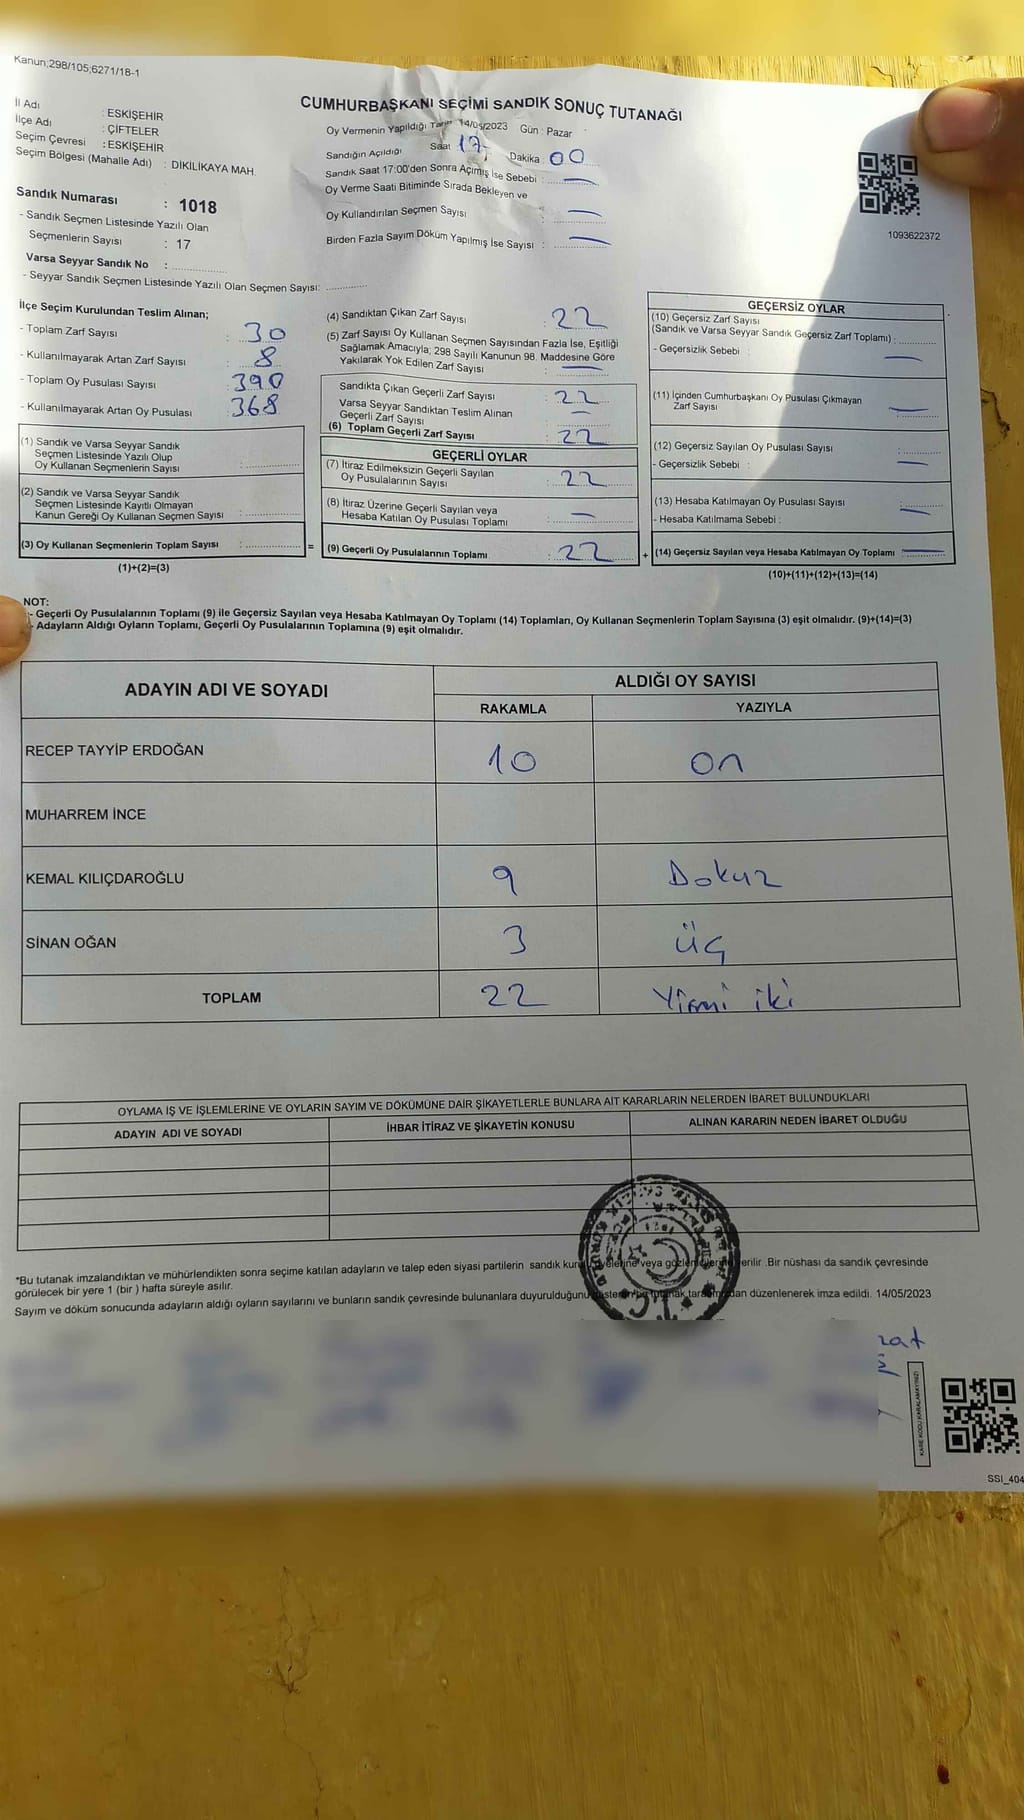 Kanun;298/105;6271/18-1
CUMHURBAŞKANI SEÇİMİ SANDIK SONUÇ TUTANAĞI
İl Adı : ESKİŞEHİR
İlçe Adı : ÇİFTELER
Seçim Çevresi : ESKİŞEHİR
Seçim Bölgesi (Mahalle Adı) : DİKİLİKAYA MAH.
Sandık Numarası : 1018
- Sandık Seçmen Listesinde Yazılı Olan
Seçmenlerin Sayısı : 17
Varsa Seyyar Sandık No :
- Seyyar Sandık Seçmen Listesinde Yazılı Olan Seçmen Sayısı:
Oy Vermenin Yapıldığı Tarih 14/05/2023 Gün : Pazar
Sandığın Açıldığı Saat 17 Dakika : 00
Sandık Saat 17:00'den Sonra Açımış İse Sebebi : —
Oy Verme Saati Bitiminde Sırada Bekleyen ve
Oy Kullandırılan Seçmen Sayısı : —
Birden Fazla Sayım Döküm Yapılmış İse Sayısı : —
1093622372
İlçe Seçim Kurulundan Teslim Alınan;
- Toplam Zarf Sayısı : 30
- Kullanılmayarak Artan Zarf Sayısı : 8
- Toplam Oy Pusulası Sayısı : 390
- Kullanılmayarak Artan Oy Pusulası : 368
(1) Sandık ve Varsa Seyyar Sandık
Seçmen Listesinde Yazılı Olup
Oy Kullanan Seçmenlerin Sayısı :
(2) Sandık ve Varsa Seyyar Sandık
Seçmen Listesinde Kayıtlı Olmayan
Kanun Gereği Oy Kullanan Seçmen Sayısı :
(3) Oy Kullanan Seçmenlerin Toplam Sayısı :
(1)+(2)=(3)
=
(4) Sandıktan Çıkan Zarf Sayısı : 22
(5) Zarf Sayısı Oy Kullanan Seçmen Sayısından Fazla İse, Eşitliği
Sağlamak Amacıyla; 298 Sayılı Kanunun 98. Maddesine Göre
Yakılarak Yok Edilen Zarf Sayısı : —
Sandıkta Çıkan Geçerli Zarf Sayısı : 22
Varsa Seyyar Sandıktan Teslim Alınan
Geçerli Zarf Sayısı : —
(6) Toplam Geçerli Zarf Sayısı : 22
GEÇERLİ OYLAR
(7) İtiraz Edilmeksizin Geçerli Sayılan
Oy Pusulalarının Sayısı : 22
(8) İtiraz Üzerine Geçerli Sayılan veya
Hesaba Katılan Oy Pusulası Toplamı : —
(9) Geçerli Oy Pusulalarının Toplamı : 22
+
GEÇERSİZ OYLAR
(10) Geçersiz Zarf Sayısı
(Sandık ve Varsa Seyyar Sandık Geçersiz Zarf Toplamı) :
- Geçersizlik Sebebi : —
(11) İçinden Cumhurbaşkanı Oy Pusulası Çıkmayan
Zarf Sayısı : —
(12) Geçersiz Sayılan Oy Pusulası Sayısı :
- Geçersizlik Sebebi : —
(13) Hesaba Katılmayan Oy Pusulası Sayısı : —
- Hesaba Katılmama Sebebi :
(14) Geçersiz Sayılan veya Hesaba Katılmayan Oy Toplamı : —
(10)+(11)+(12)+(13)=(14)
NOT:
- Geçerli Oy Pusulalarının Toplamı (9) ile Geçersiz Sayılan veya Hesaba Katılmayan Oy Toplamı (14) Toplamları, Oy Kullanan Seçmenlerin Toplam Sayısına (3) eşit olmalıdır. (9)+(14)=(3)
- Adayların Aldığı Oyların Toplamı, Geçerli Oy Pusulalarının Toplamına (9) eşit olmalıdır.
ADAYIN ADI VE SOYADI ALDIĞI OY SAYISI
RAKAMLA YAZIYLA
RECEP TAYYİP ERDOĞAN 10 on
MUHARREM İNCE
KEMAL KILIÇDAROĞLU 9 Dokuz
SİNAN OĞAN 3 üç
TOPLAM 22 Yirmi iki
OYLAMA İŞ VE İŞLEMLERİNE VE OYLARIN SAYIM VE DÖKÜMÜNE DAİR ŞİKAYETLERLE BUNLARA AİT KARARLARIN NELERDEN İBARET BULUNDUKLARI
ADAYIN ADI VE SOYADI İHBAR İTİRAZ VE ŞİKAYETİN KONUSU ALINAN KARARIN NEDEN İBARET OLDUĞU
*Bu tutanak imzalandıktan ve mühürlendikten sonra seçime katılan adayların ve talep eden siyasi partilerin sandık kurulu üyelerine veya gözlemcilerine verilir .Bir nüshası da sandık çevresinde
görülecek bir yere 1 (bir ) hafta süreyle asılır.
Sayım ve döküm sonucunda adayların aldığı oyların sayılarını ve bunların sandık çevresinde bulunanlara duyurulduğunu gösteren bu tutanak tarafımızdan düzenlenerek imza edildi. 14/05/2023
T.C.
KARE KODU KARALAMAYINIZ!
SSI_404